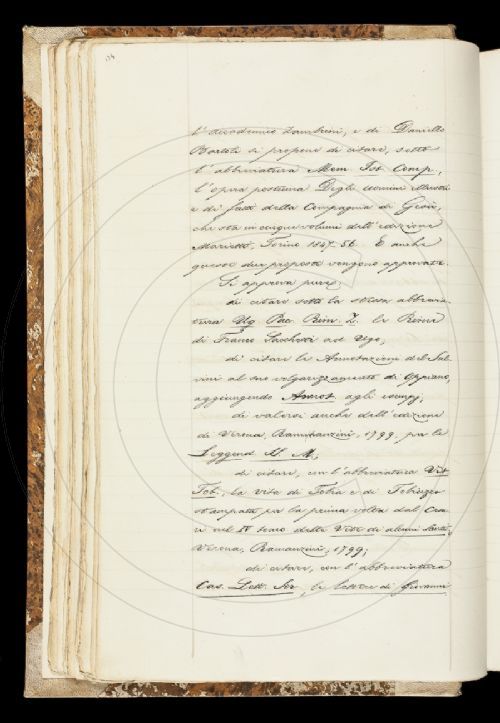 l'Accademico Zambrini, e di Daniello
Bartoli si propone di citare, sotto
l'abbreviatura Mem. Ist. Comp.,
l'opera postuma Degli uomini illustri
e di fatti della Compagnia di Gesù,
che sta in cinque volumi dell'edizione
Marietti, Torino 1847-56. E anche
queste due proposte vengono approvate.
Si approva pure;
di citare sotto la stessa abbrevia-
tura Ug. Pac. Rim. Z. le Rime
di Franco Sacchetti ad Ugo;
di citare le Annotazioni del Sal-
vini al suo volgarizzamento di Oppiano,
aggiungendo Annot. agli esempj;
di valersi anche dell'edizione
di Verona, Ramanzini, 1799, per le
Leggend. SS. M.;
di citare, con l'abbreviatura Vit.
Tob., la vita di Tobia e di Tobiuzzo
stampata per la prima volta dal Cesa-
ri nel IV tomo delle Vite di alcuni Santi,
Verona, Ramanzini, 1799;
di citare, con l'abbreviatura
Cas. Lett. , le lettere di Giovanni